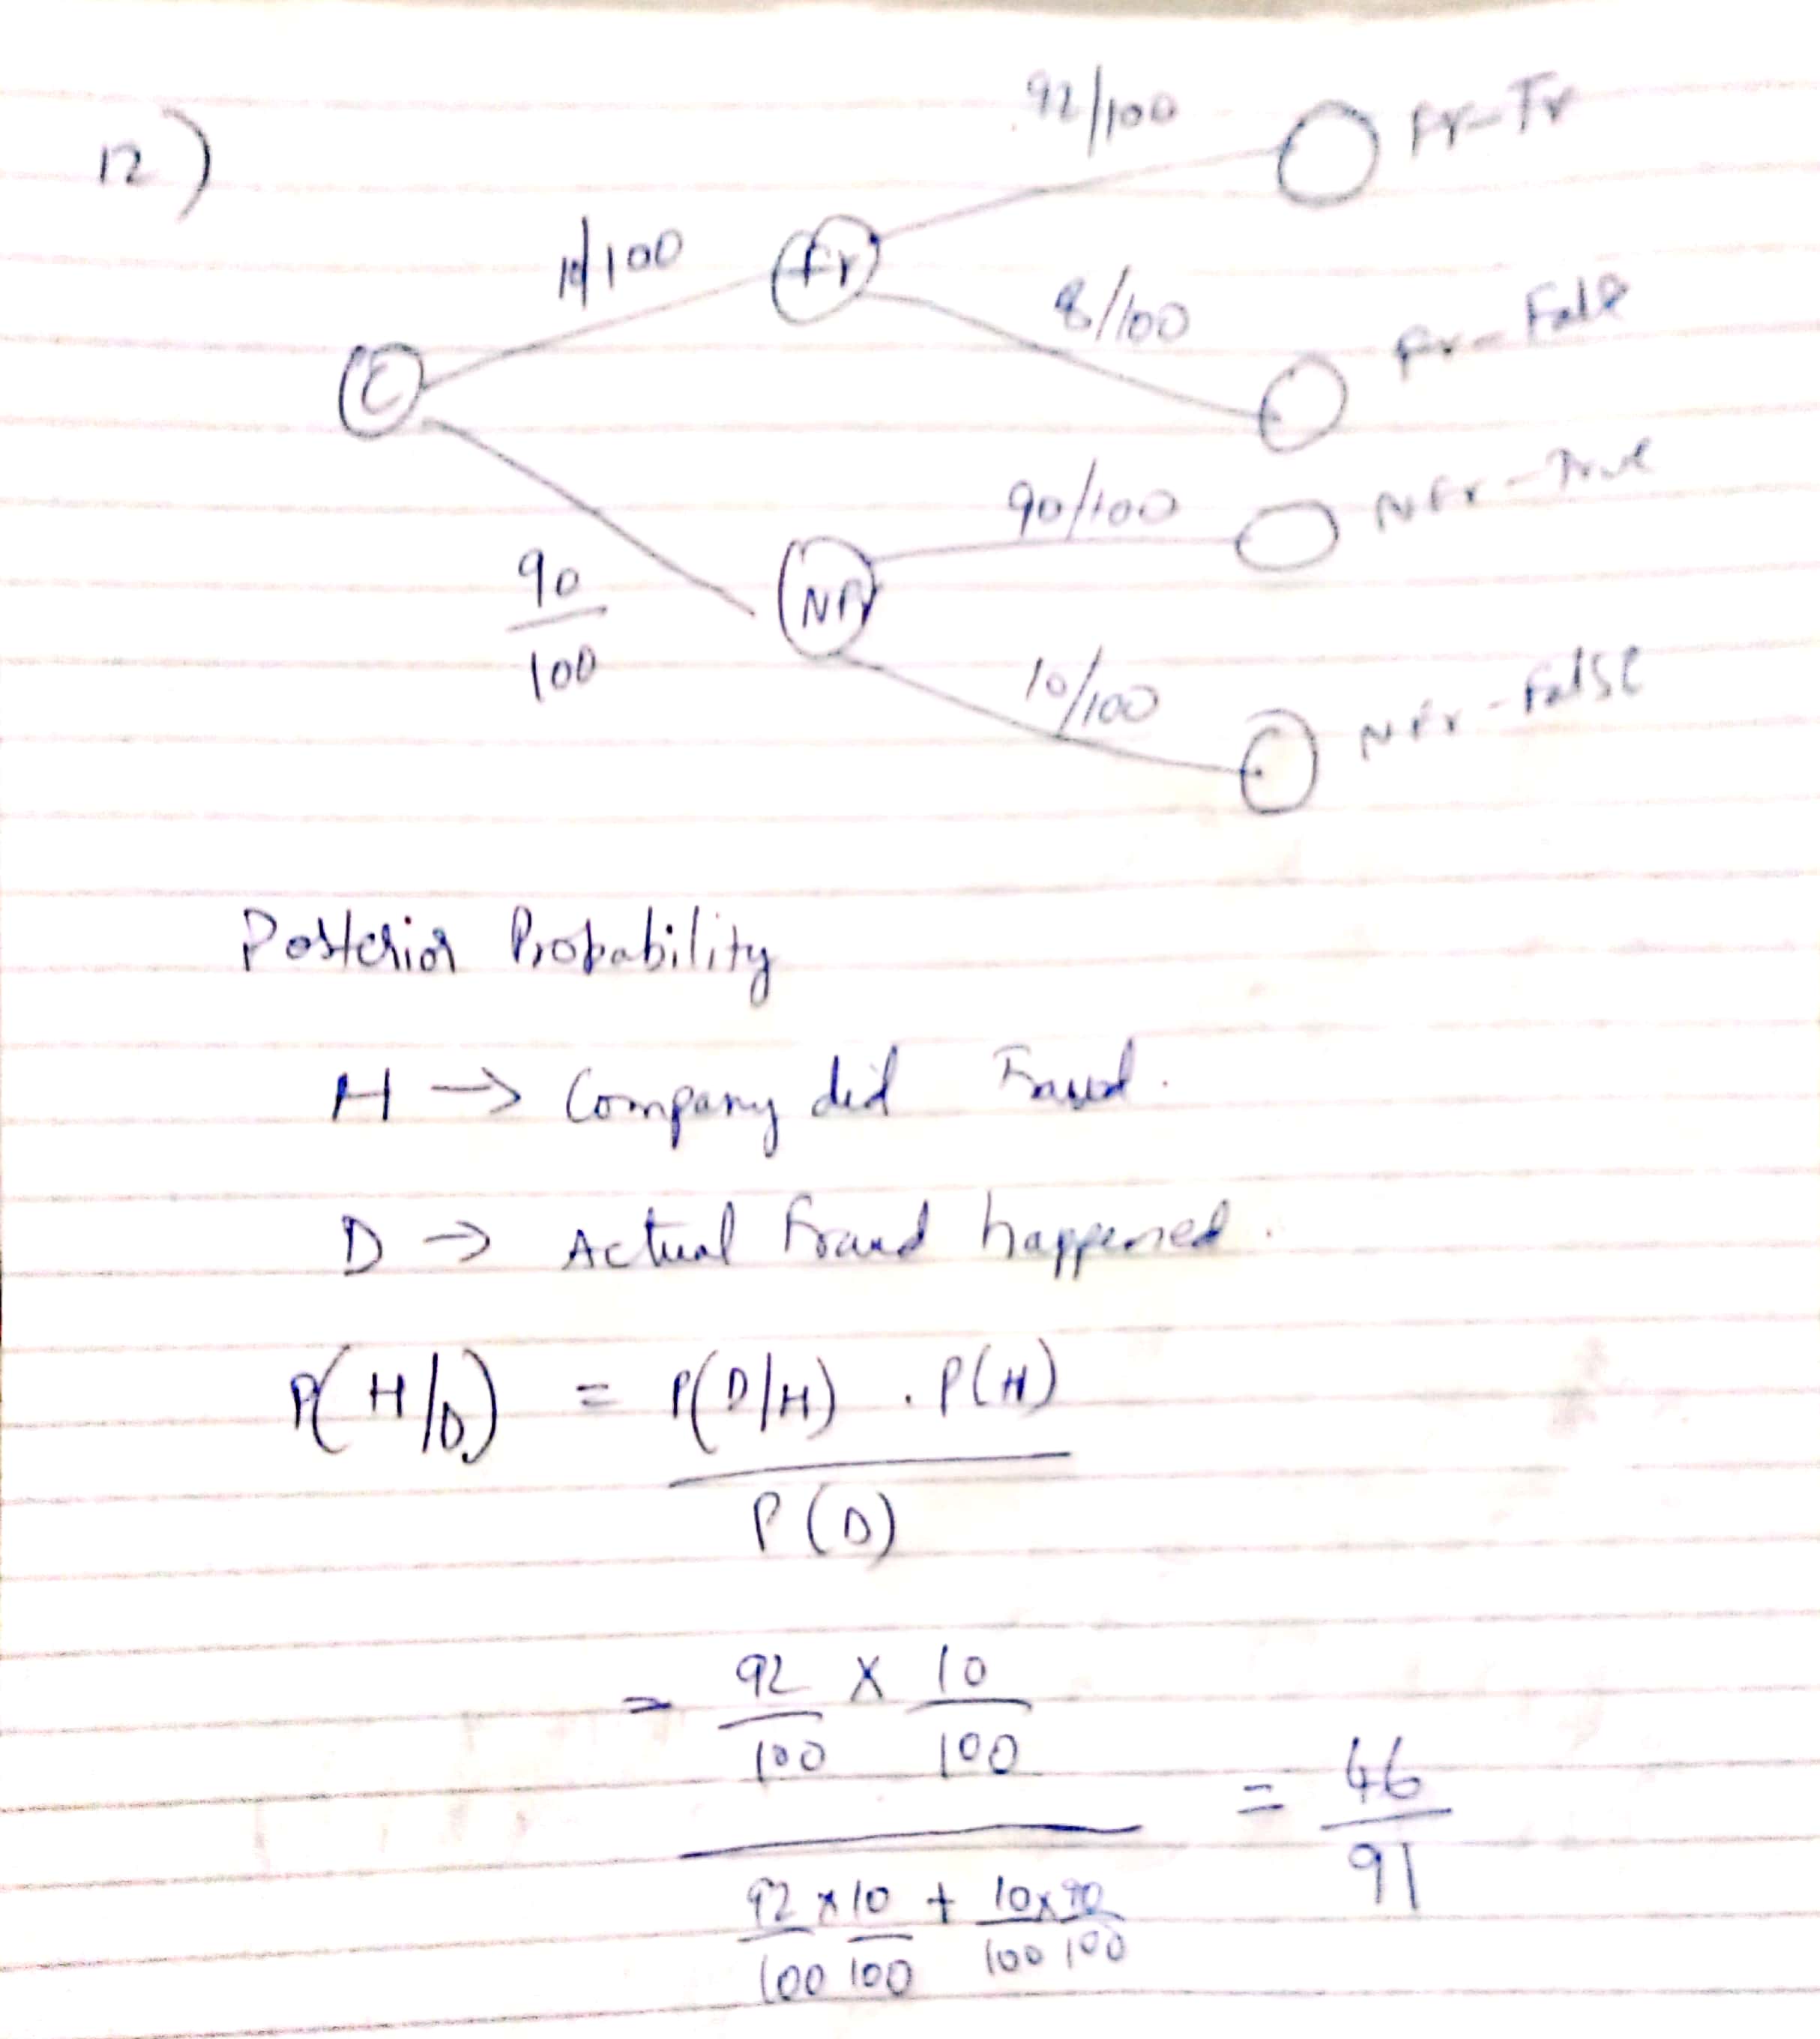 12)
92/100
Fr-Tr
10/100
Fr
8/100
Fr-Falle
C
90/100
NFr-True
90
100
NFr
10/100
NFr-False
Posterior Probability
H → Company did Fraud.
D → Actual Fraud happened.
P(H/D) = P(D/H) . P(H)
P(D)
= 92 x 10
100 100
= 46
91
92 x 10 + 10 x 90
100 100 100 100